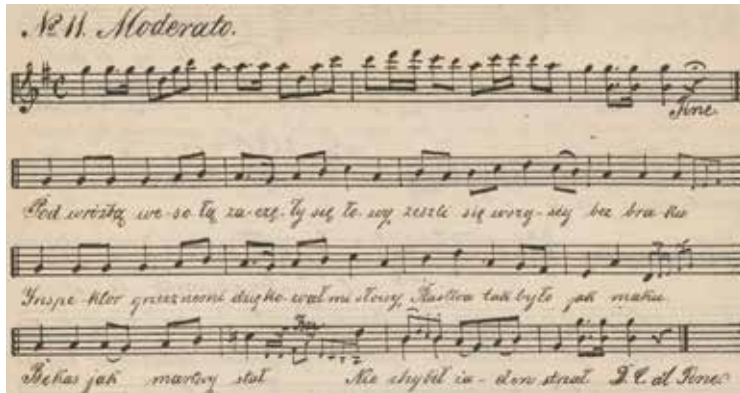 No 11. Moderato.
Fine.
Pod wróżbą we-so-łą za-czę-ły się ło-wy, zeszli się wszy-scy bez bra-ku
Ynspe-ktor grzecznemi dzięko-wał mi słowy, Ptastwa tak było jak maku
Bekas jak martwy stał Nie chybił ża-den strzał. D.C. al Fine.